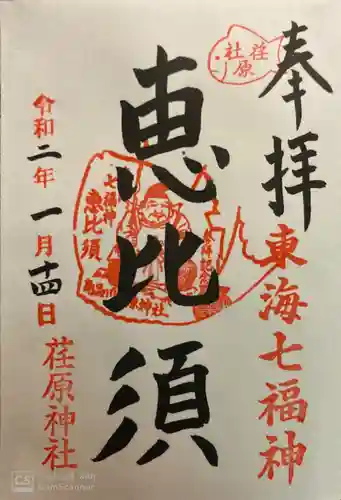 奉拝
東海七福神
荏原
社
恵比須
七福神
恵比須
神社
令和二年一月十四日
荏原神社
CS
CamScanner